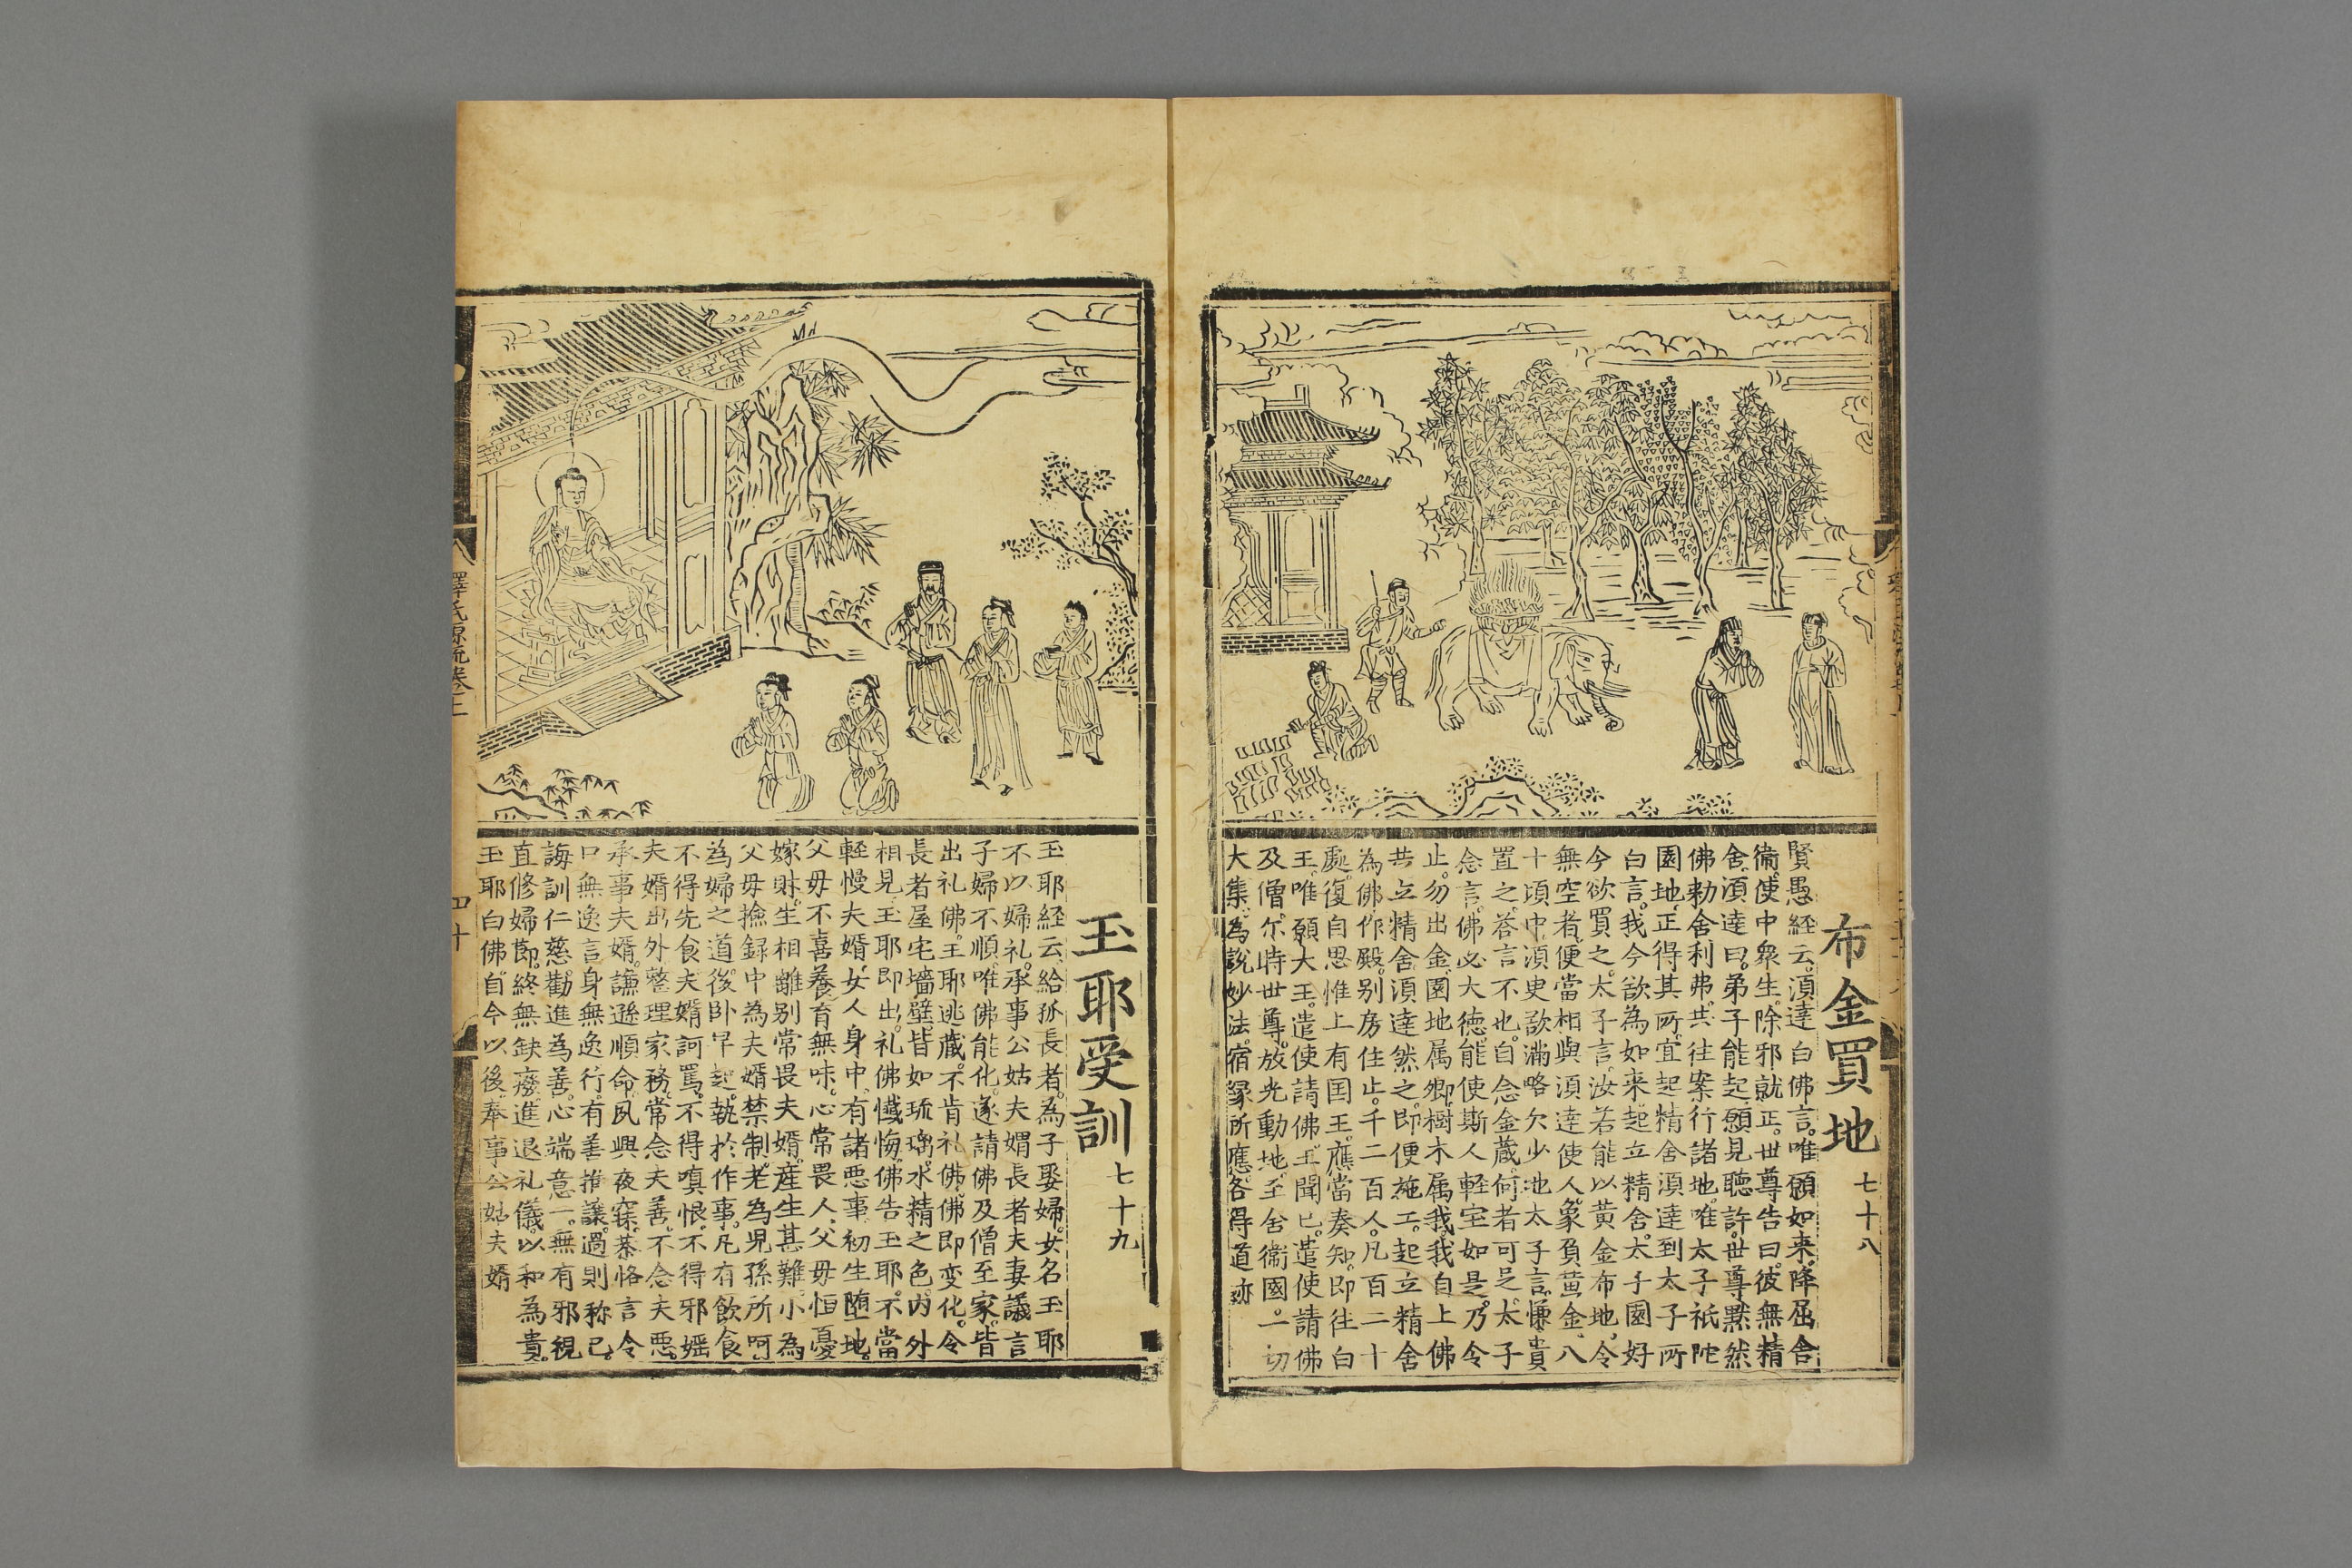 布金買地 七十八
賢愚経云湏達白佛言唯願如来降屈舍
衞使中衆生除邪就正世尊告曰彼無精
舍湏達曰弟子能起願見聽許世尊黙然
佛勑舍利弗共往案行諸地唯太子祇陀
園地正得其所宜起精舍湏達到太子所
白言我今欲為如来起立精舍太子園好
今欲買之太子言汝若能以黄金布地令
無空者便當相與湏達使人象負黄金八
十頃中湏㬰欲滿略欠少地太子言慊貴
置之荅言不也自念金蔵何者可足太子
念言佛必大德能使斯人軽宝如是乃令
止勿出金園地属卿樹木属我我自上佛
共立精舍湏達然之即便施工起立精舍
為佛作殿别房住止千二百人凡百二十
處復自思惟上有囯王應當奏知即往白
王唯願大王遣使請佛王聞已遣使請佛
及僧尒時世尊放光動地至舍衞國一切
大集為說妙法宿縁所應各得道迹
玉耶受訓 七十九
玉耶経云給孤長者為子娶婦女名玉耶
不以婦礼承事公姑夫婿長者夫妻議言
子婦不順唯佛能化遂請佛及僧至家皆
出礼佛玉耶逃蔵不肯礼佛佛即变化令
長者屋宅墻壁皆如琉璃水精之色内外
相見玉耶即出礼佛懴悔佛告玉耶不當
軽慢夫婿女人身中有諸悪事初生堕地
父毋不喜養育無味心常畏人父毋恒憂
嫁財生相離别常畏夫婿産生甚難小為
父毋撿録中為夫婿禁制老為児孫所呵
為婦之道後卧早起執於作事凡有飲食
不得先食夫婿訶罵不得嗔恨不得邪婬
夫婿出外整理家務常念夫善不念夫悪
承事夫婿謙遜順命夙興夜寐恭恪言令
口無逸言身無逸行有善推讓過則称己
誨訓仁慈勸進為善心端意一無有邪視
直修婦節終無缺癈進退礼儀以和為貴
玉耶白佛自今以後奉事公姑夫婿
釋氏源流卷上
四十